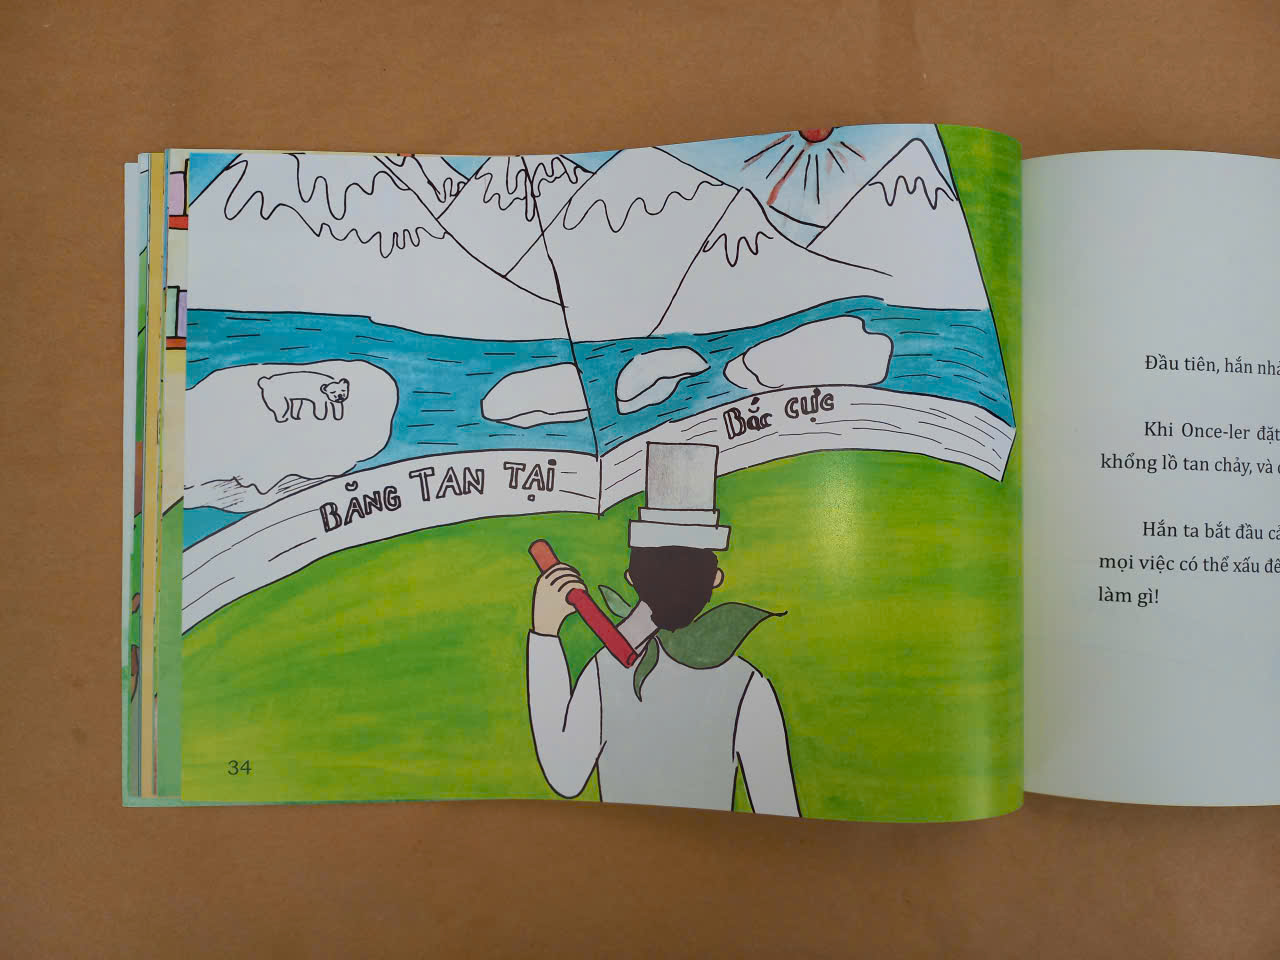 BĂNG TAN TẠI Bắc CỰC
34
Đầu tiên, hắn
Khi Once-ler đặt
khổng lồ tan chảy, và
Hắn ta bắt đầu
mọi việc có thể xấu
làm gì!